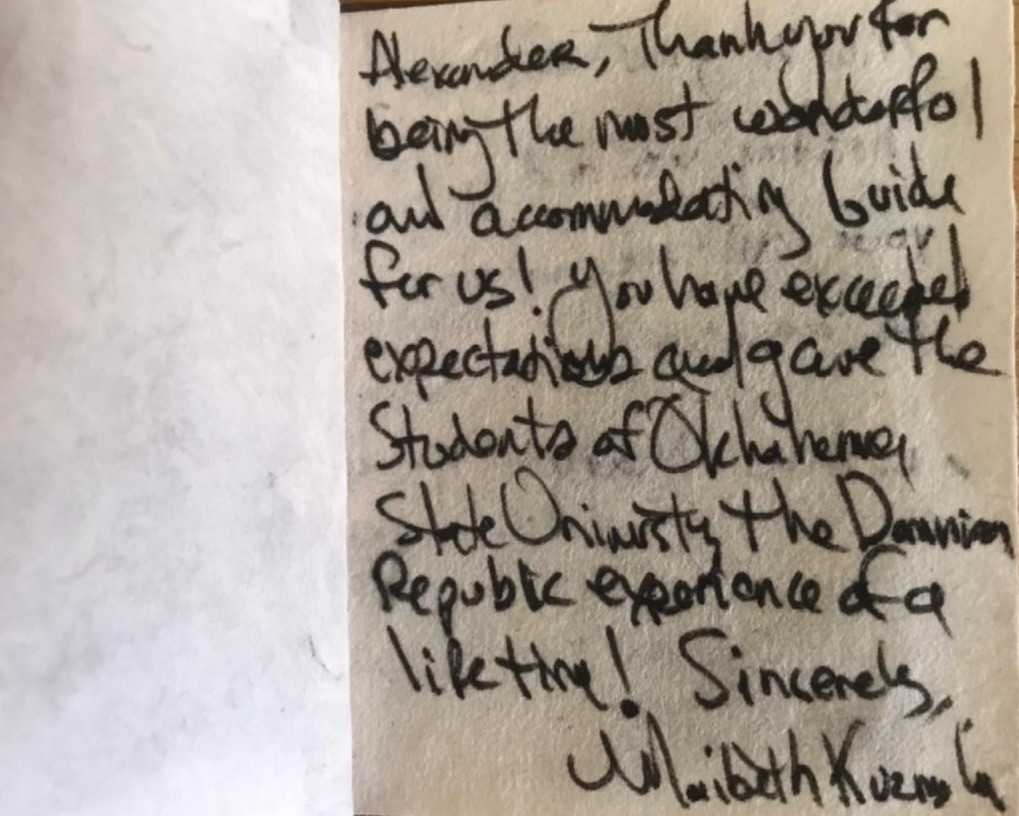 Alexander, Thank you for
being the most wonderful
and accommodating Guide
for us! You have exceeded
expectations and gave the
Students of Oklahoma
State University the Dominican
Republic experience of a
lifetime! Sincerely,
Maibeth